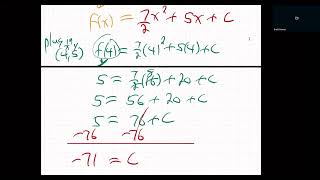 f(x) = 7/2 x² + 5x + C
plug in (4,5) f(4) = 7/2 (4)² + 5(4) + C
5 = 7/2 (16) + 20 + C
5 = 56 + 20 + C
5 = 76 + C
-76 -76
-71 = C